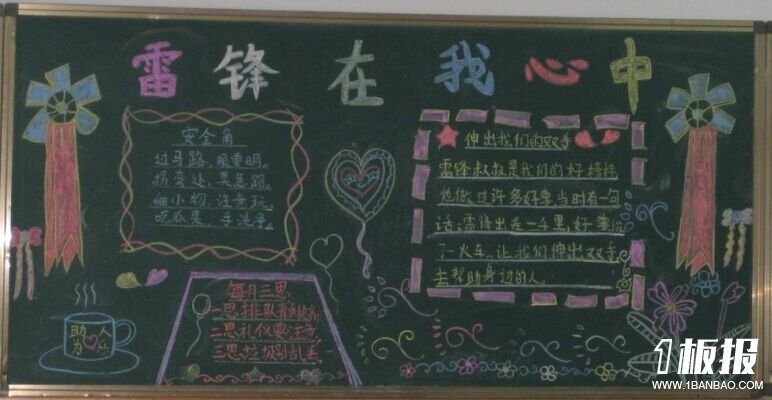 雷锋在我心中
安全角
过马路，眼要明。
拐弯处，莫急跑。
细小物，注意玩。
吃瓜果，手洗净。
伸出我们的双手
雷锋叔叔是我们的好榜样
他做过许多好事,当时有一句
话:雷锋出差一千里,好事做
了一火车。让我们伸出双手
去帮助身边的人。
每月三思
一思排队有
二思礼仪要注意
三思垃圾别乱丢
助人
为乐
1板报
WWW.1BANBAO.COM